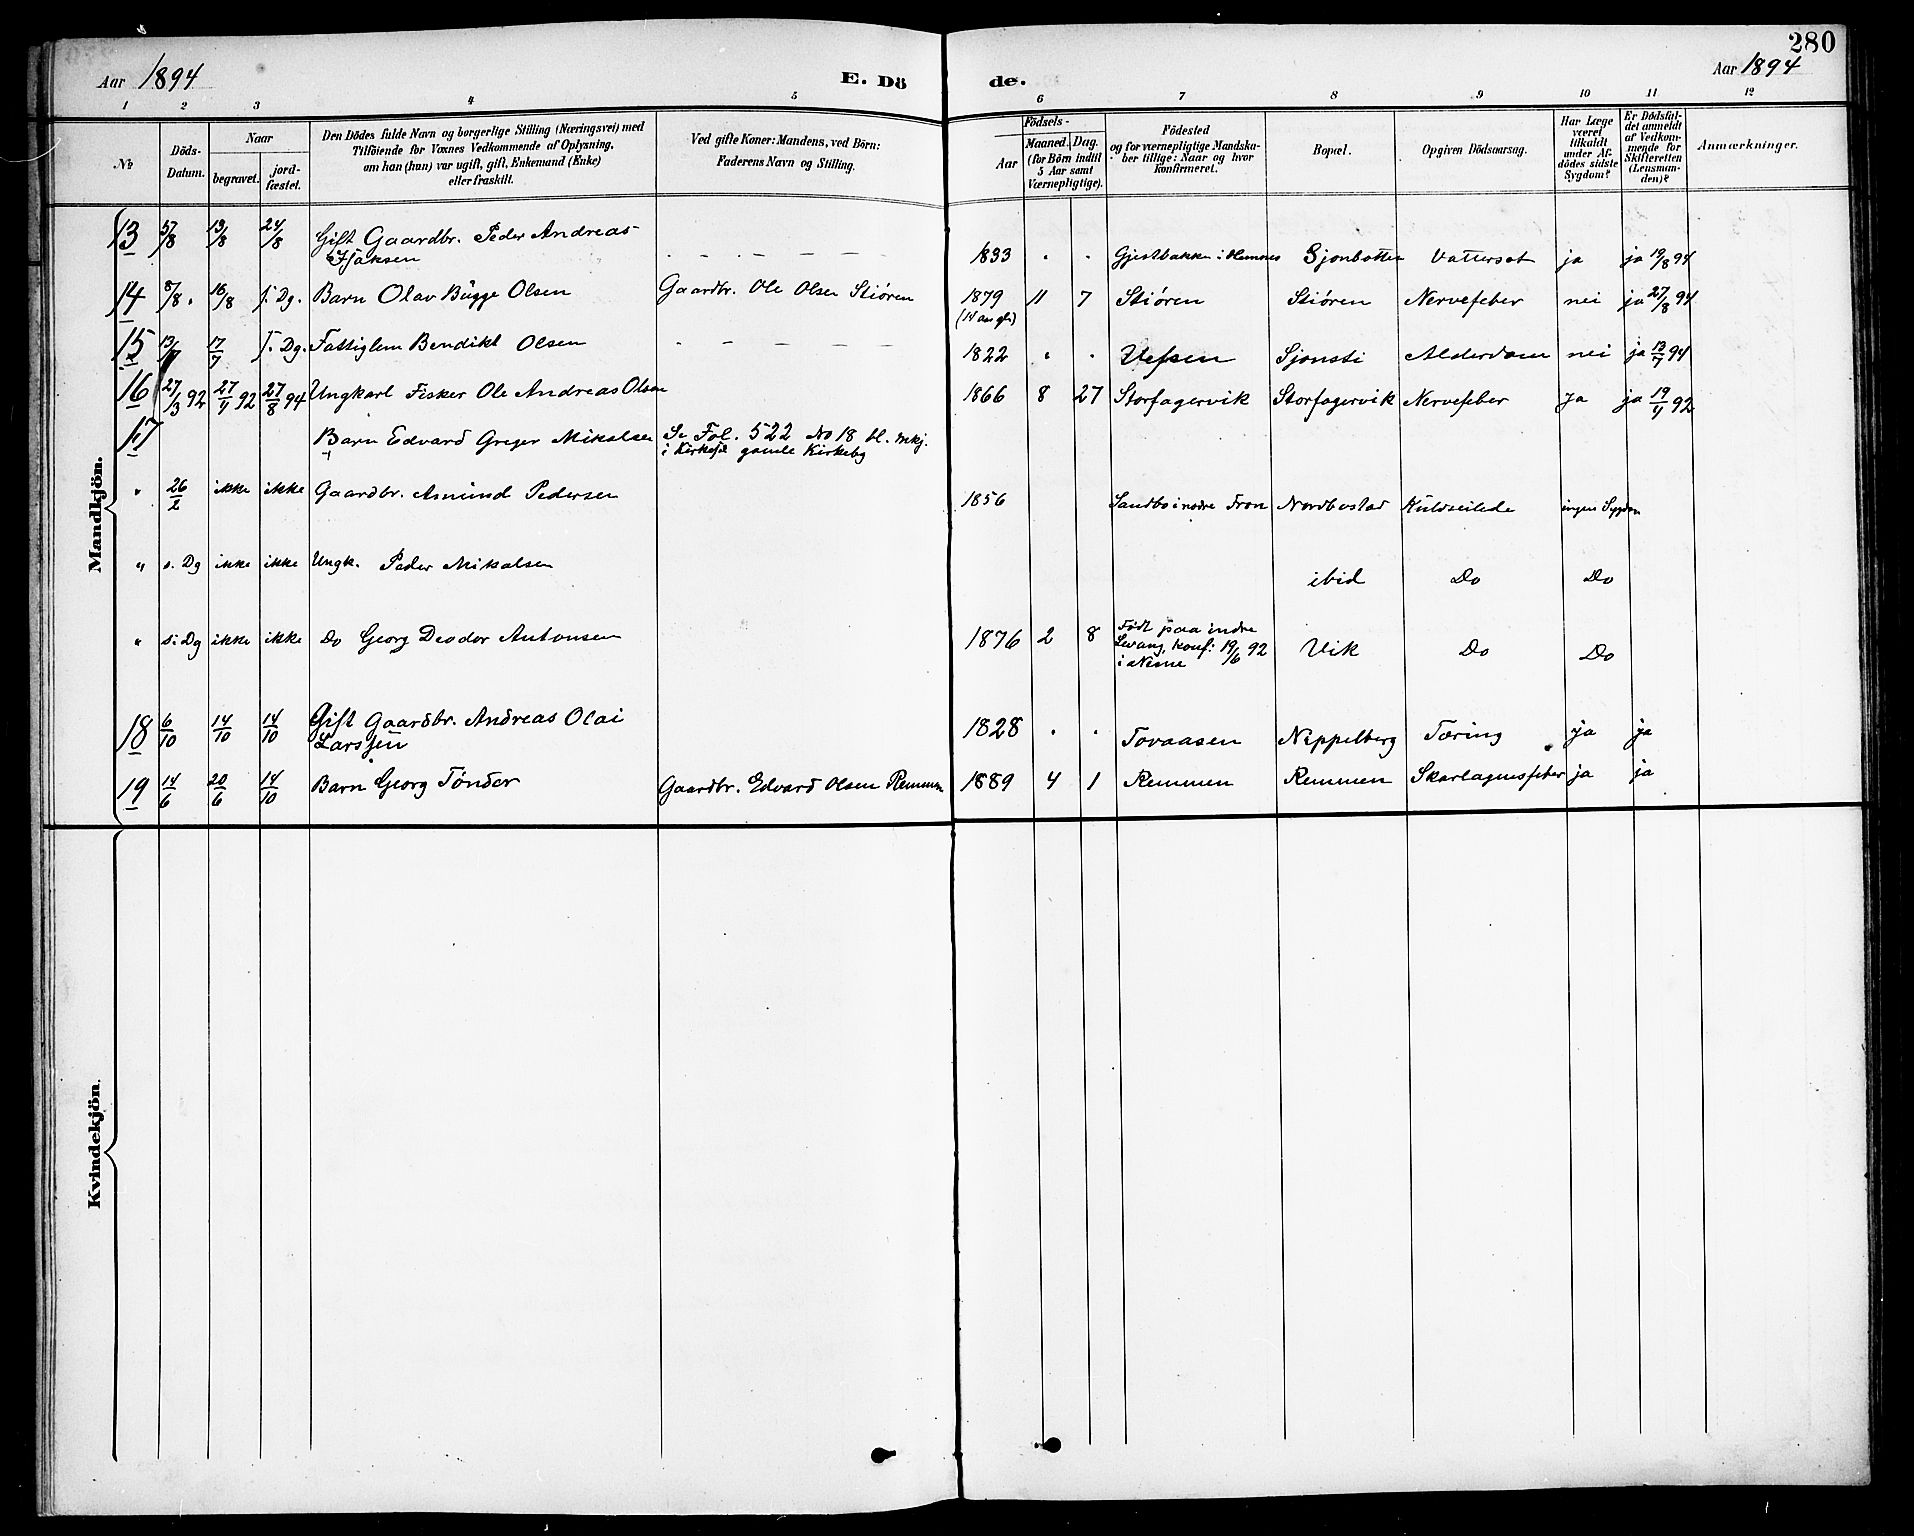 280
Aar 1894
E. Dö
de.
Aar 1894
1 2 3 4 5 6 7 8 9 10 11 12
No
Döds-
Datum.
Naar
begravet.
jord-
fæstet.
Den Dödes fulde Navn og borgerlige Stilling (Næringsvei) med
Tilföiende for Voxnes Vedkommende af Oplysning,
om han (hun) var ugift, gift, Enkemand (Enke)
eller fraskilt.
Ved gifte Koner: Mandens, ved Börn:
Faderens Navn og Stilling.
Födsels-
Aar
Maaned. Dag.
(for Börn indtil
5 Aar samt
Værnepligtige).
Födested
og for værnepligtige Mandska-
ber tillige: Naar og hvor
konfirmeret.
Bopæl.
Opgiven Dödsaarsag.
Har Læge
været
tilkaldt
under Af-
dödes sidste
Sygdom?
Er Dödsfal-
det anmeldt
af Vedkom-
mende for
Skifteretten
(Lensman-
den)?
Anmærkninger.
Mandkjön.
13 5/8 13/8 24/8 Gift Gaardbr. Peder Andreas
Isaksen - - - - - 1833 " " Gjestbakken i Hemnes Sjonbotten Vattersot ja ja 19/8 94
14 8/8 16/8 s. Dg. Barn Olav Bügge Olsen Gaardbr. Ole Olsen Stiören 1879 11 7 Stiören Stiören Nervefeber nei ja 27/8 94
(14 aar gl:)
15 13/7 17/7 s. Dg. Fattiglem Bendikt Olsen - - - - - 1822 " " Vefsen Sjonsti Alderdom nei ja 13/7 94
16 27/3 92 27/4 92 27/8 94 Ungkarl Fisker Ole Andreas Olsen 1866 8 27 Storfagervik Storfagervik Nervefeber ja ja 19/4 92
17 Barn Edvard Greger Mikalsen Se Fol. 522 No 18 bl. mkj.
i gamle Kirkebg
" 26/2 ikke ikke Gaardbr. Amund Pedersen 1856 Sandbo i nordre Fron Nordbostad Kuldseilede ingen Sygdom
" s. Dg ikke ikke Ungk. Peder Mikalsen ibid Do Do
" s: Dg ikke ikke Do Georg Deodor Antonsen 1876 2 8 Födt paa indre
Levang, konf: 19/6 92
i Nesne Vik Do Do
18 6/10 14/10 14/10 Gift Gaardbr. Andreas Olai
Larssen 1828 " " Tovaasen Nippelberg Tæring ja ja
19 14/6 20/6 14/10 Barn Georg Tönder Gaardbr. Edvard Olsen Remmen 1889 4 1 Remmen Remmen Skarlagensfeber ja ja
Kvindekjön.